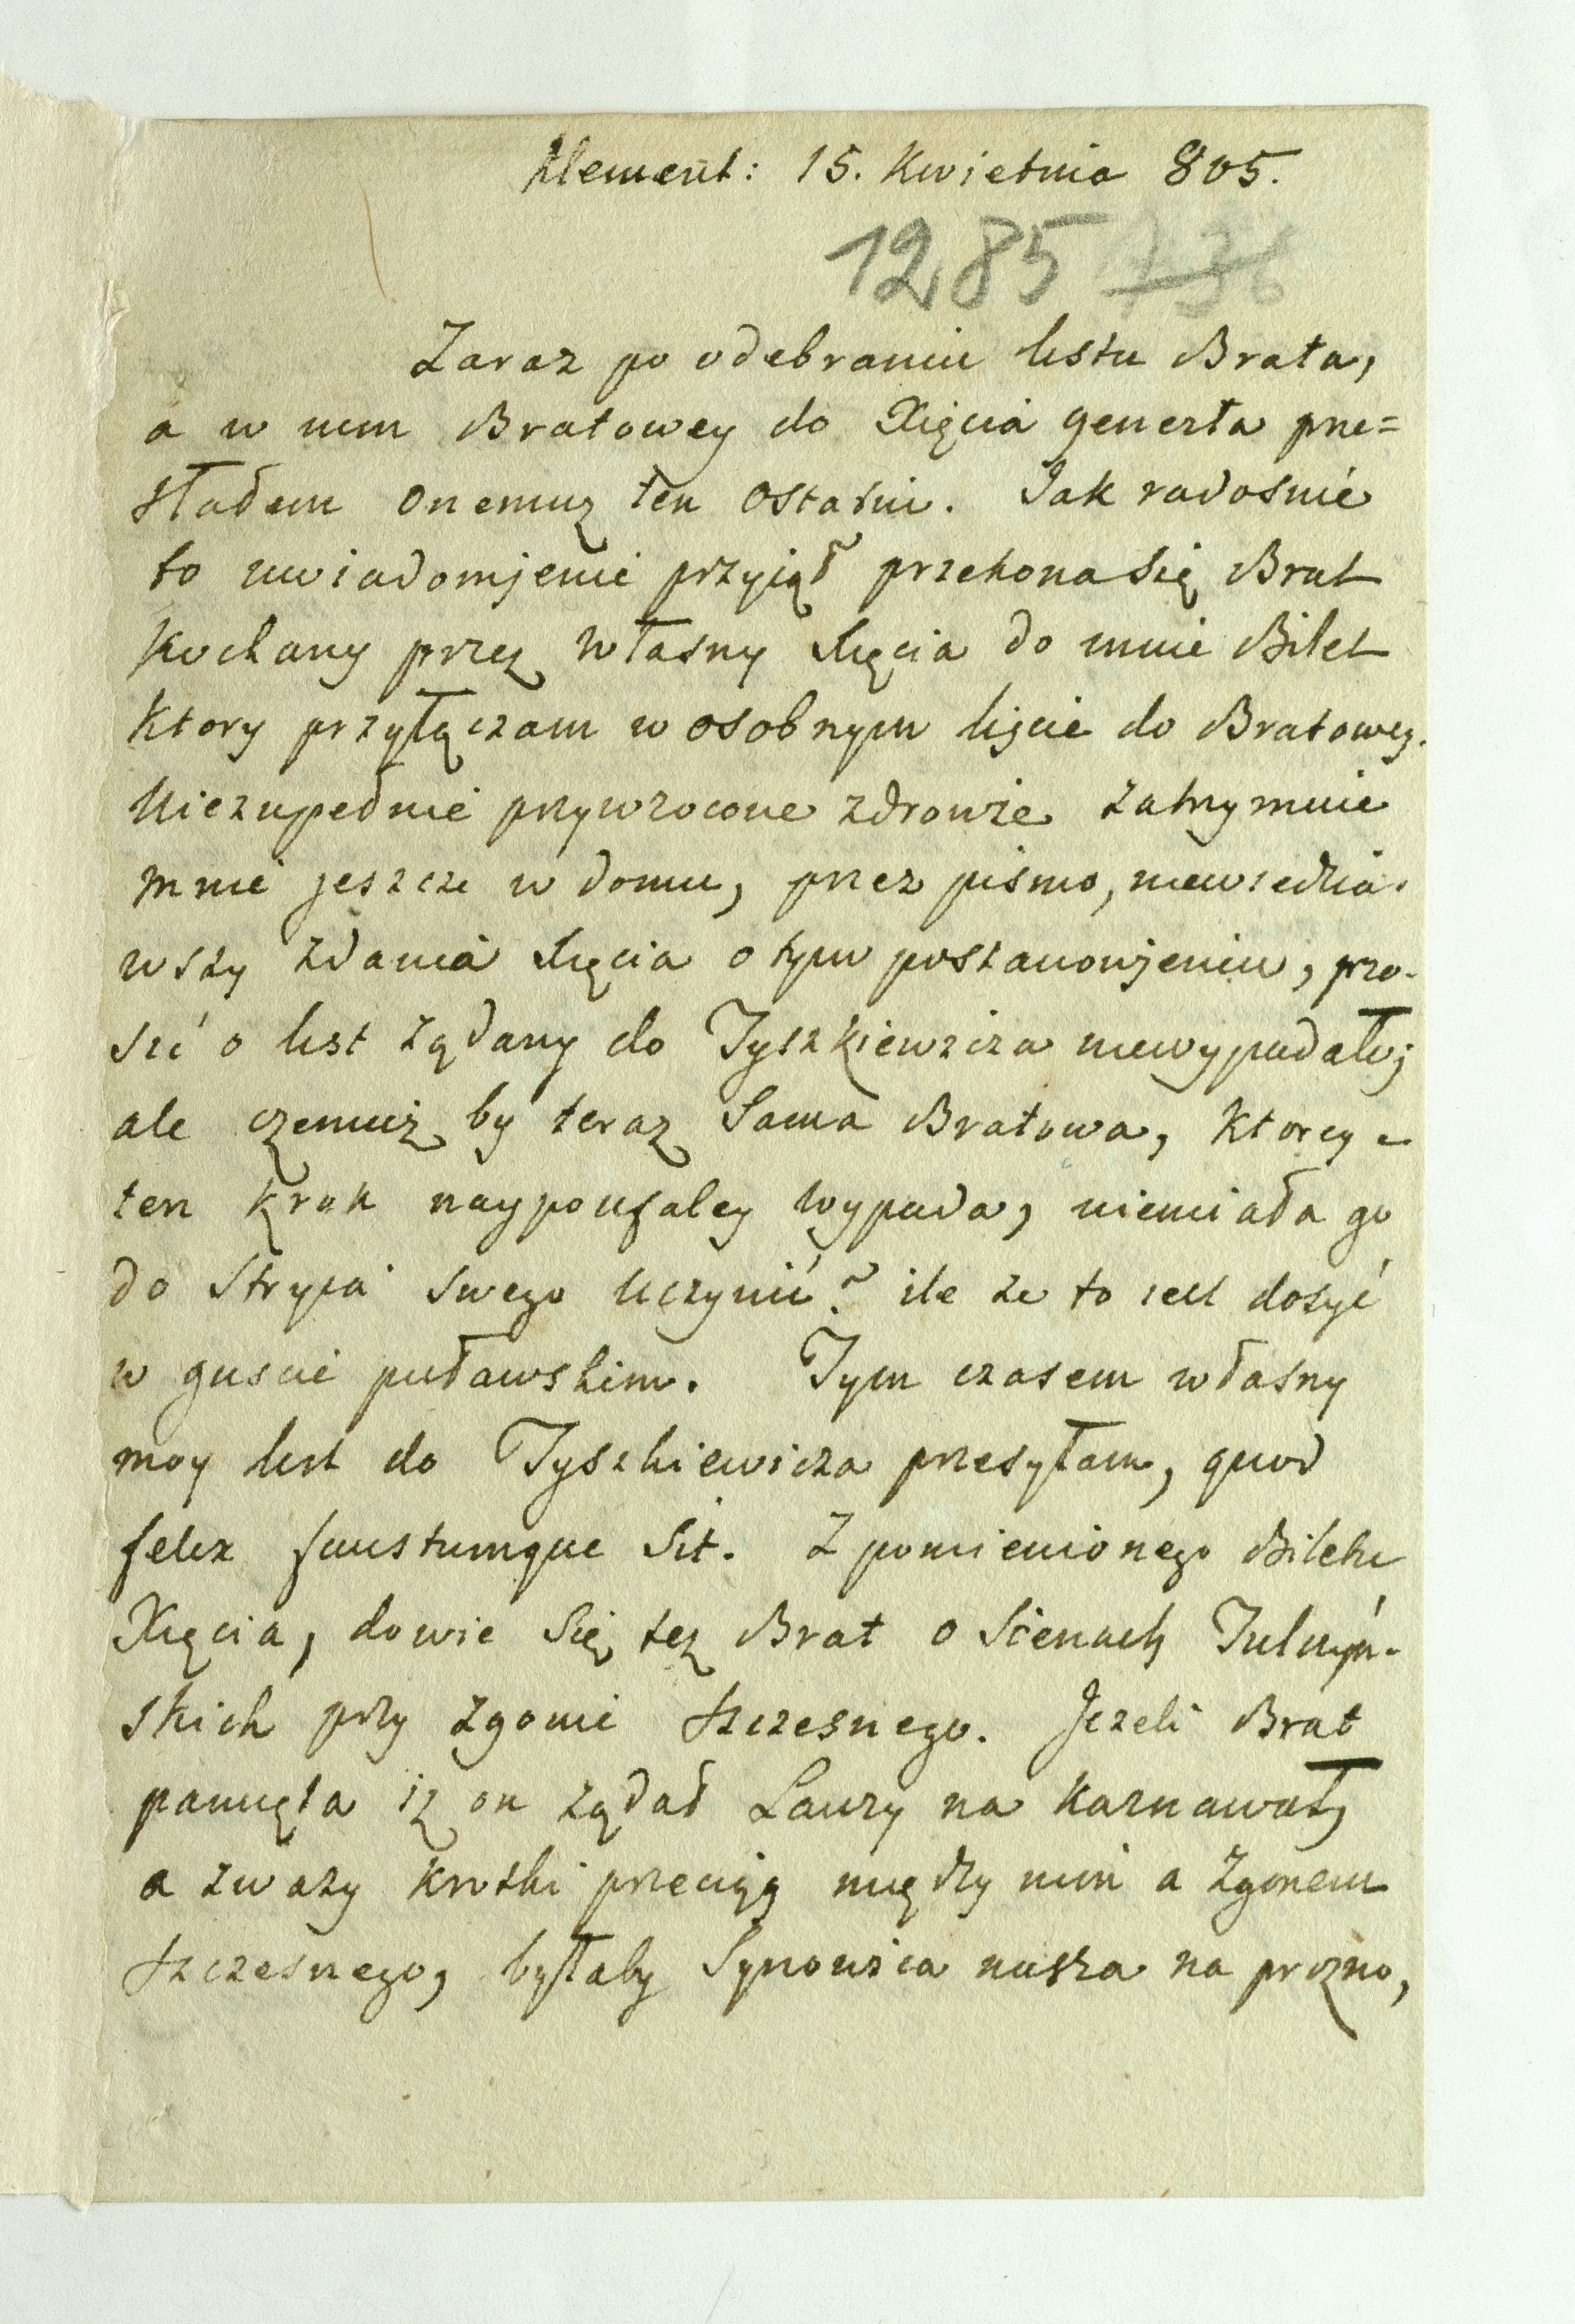 Klement: 15. Kwietnia 805.
1285 736
Zaraz po odebraniu listu Brata,
a w nim Bratowey do Xięcia generła prze=
słałem onemuz ten ostatni. Jak radosnie
to uwiadomjenie przyiął przekona się Brat
kochany przez własny Xięcia do mnie Bilet
ktory przyłączam w osobnym liscie do Bratowey.
Niezupełnie przywrocone zdrowie zatrzymuie
mnie jeszcze w domu, przez pismo, niewiedzia-
wszy zdania Xięcia o tym postanowjeniu, pro-
sić o list żądany do Tyszkiewicza niewypadało;
ale czemuż by teraz sama Bratowa, ktorey
ten krok naypoufaley wypada, niemiała go
do Stryia swego uczynić? ile ze to iest dosyć
w guscie puławskim. Tym czasem własny
moy list do Tyszkiewicza przesyłam, quod
felix faustumque sit. Z pomienionego Biletu
Xięcia, dowie się tez Brat o scenach Tulczyń-
skich przy zgonie Szczesnego. Jezeli Brat
pamięta iz on żądał Laury na karnawał,
a zwazy krotki przeciąg między nim a zgonem
Szczesnego, byłaby Synowica nasza na prozno,